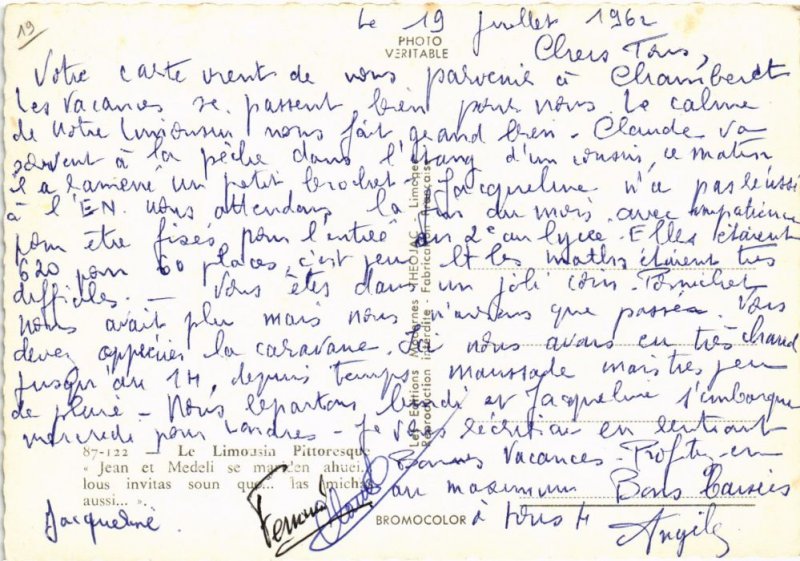 19
Le 19 juillet 1962
PHOTO
VERITABLE
Chers Tous,
Votre carte vient de nous parvenir à Chamberet
Les vacances se passent bien pour nous. Le calme
de notre Limousin nous fait grand bien - Claude va
souvent à la pêche dans l'étang d'un cousin, ce matin
il a ramené un petit brochet - Jacqueline n'a pas réussi
à l'EN. nous attendons la fin du mois avec impatience
pour être fixés pour l'entrée en 2e au lycée. Elles étaient
620 pour 60 places, c'est peu. Et les maths étaient très
difficiles. - Vous êtes dans un joli coin. Pornichet
nous avait plu mais nous n'avions que passé. Vous
devez apprécier la caravane. Ici nous avons eu très chaud
jusqu'au 14, depuis temps maussade mais très peu
de pluie - Nous repartons lundi et Jacqueline s'embarque
mercredi pour Londres - Je vous écrirai en rentrant
Bonnes Vacances - Profitez-en
au maximum Bons baisers
à tous 4
Angèle
Jacqueline
Fernand
Claude
87-122 — Le Limousin Pittoresque
« Jean et Medeli se mari'en ahuei...
lous invitas soun que... las micha
aussi... ».
BROMOCOLOR
Les Editions Modernes - THEOJAC - Limoges
Reproduction interdite - Fabrication Française